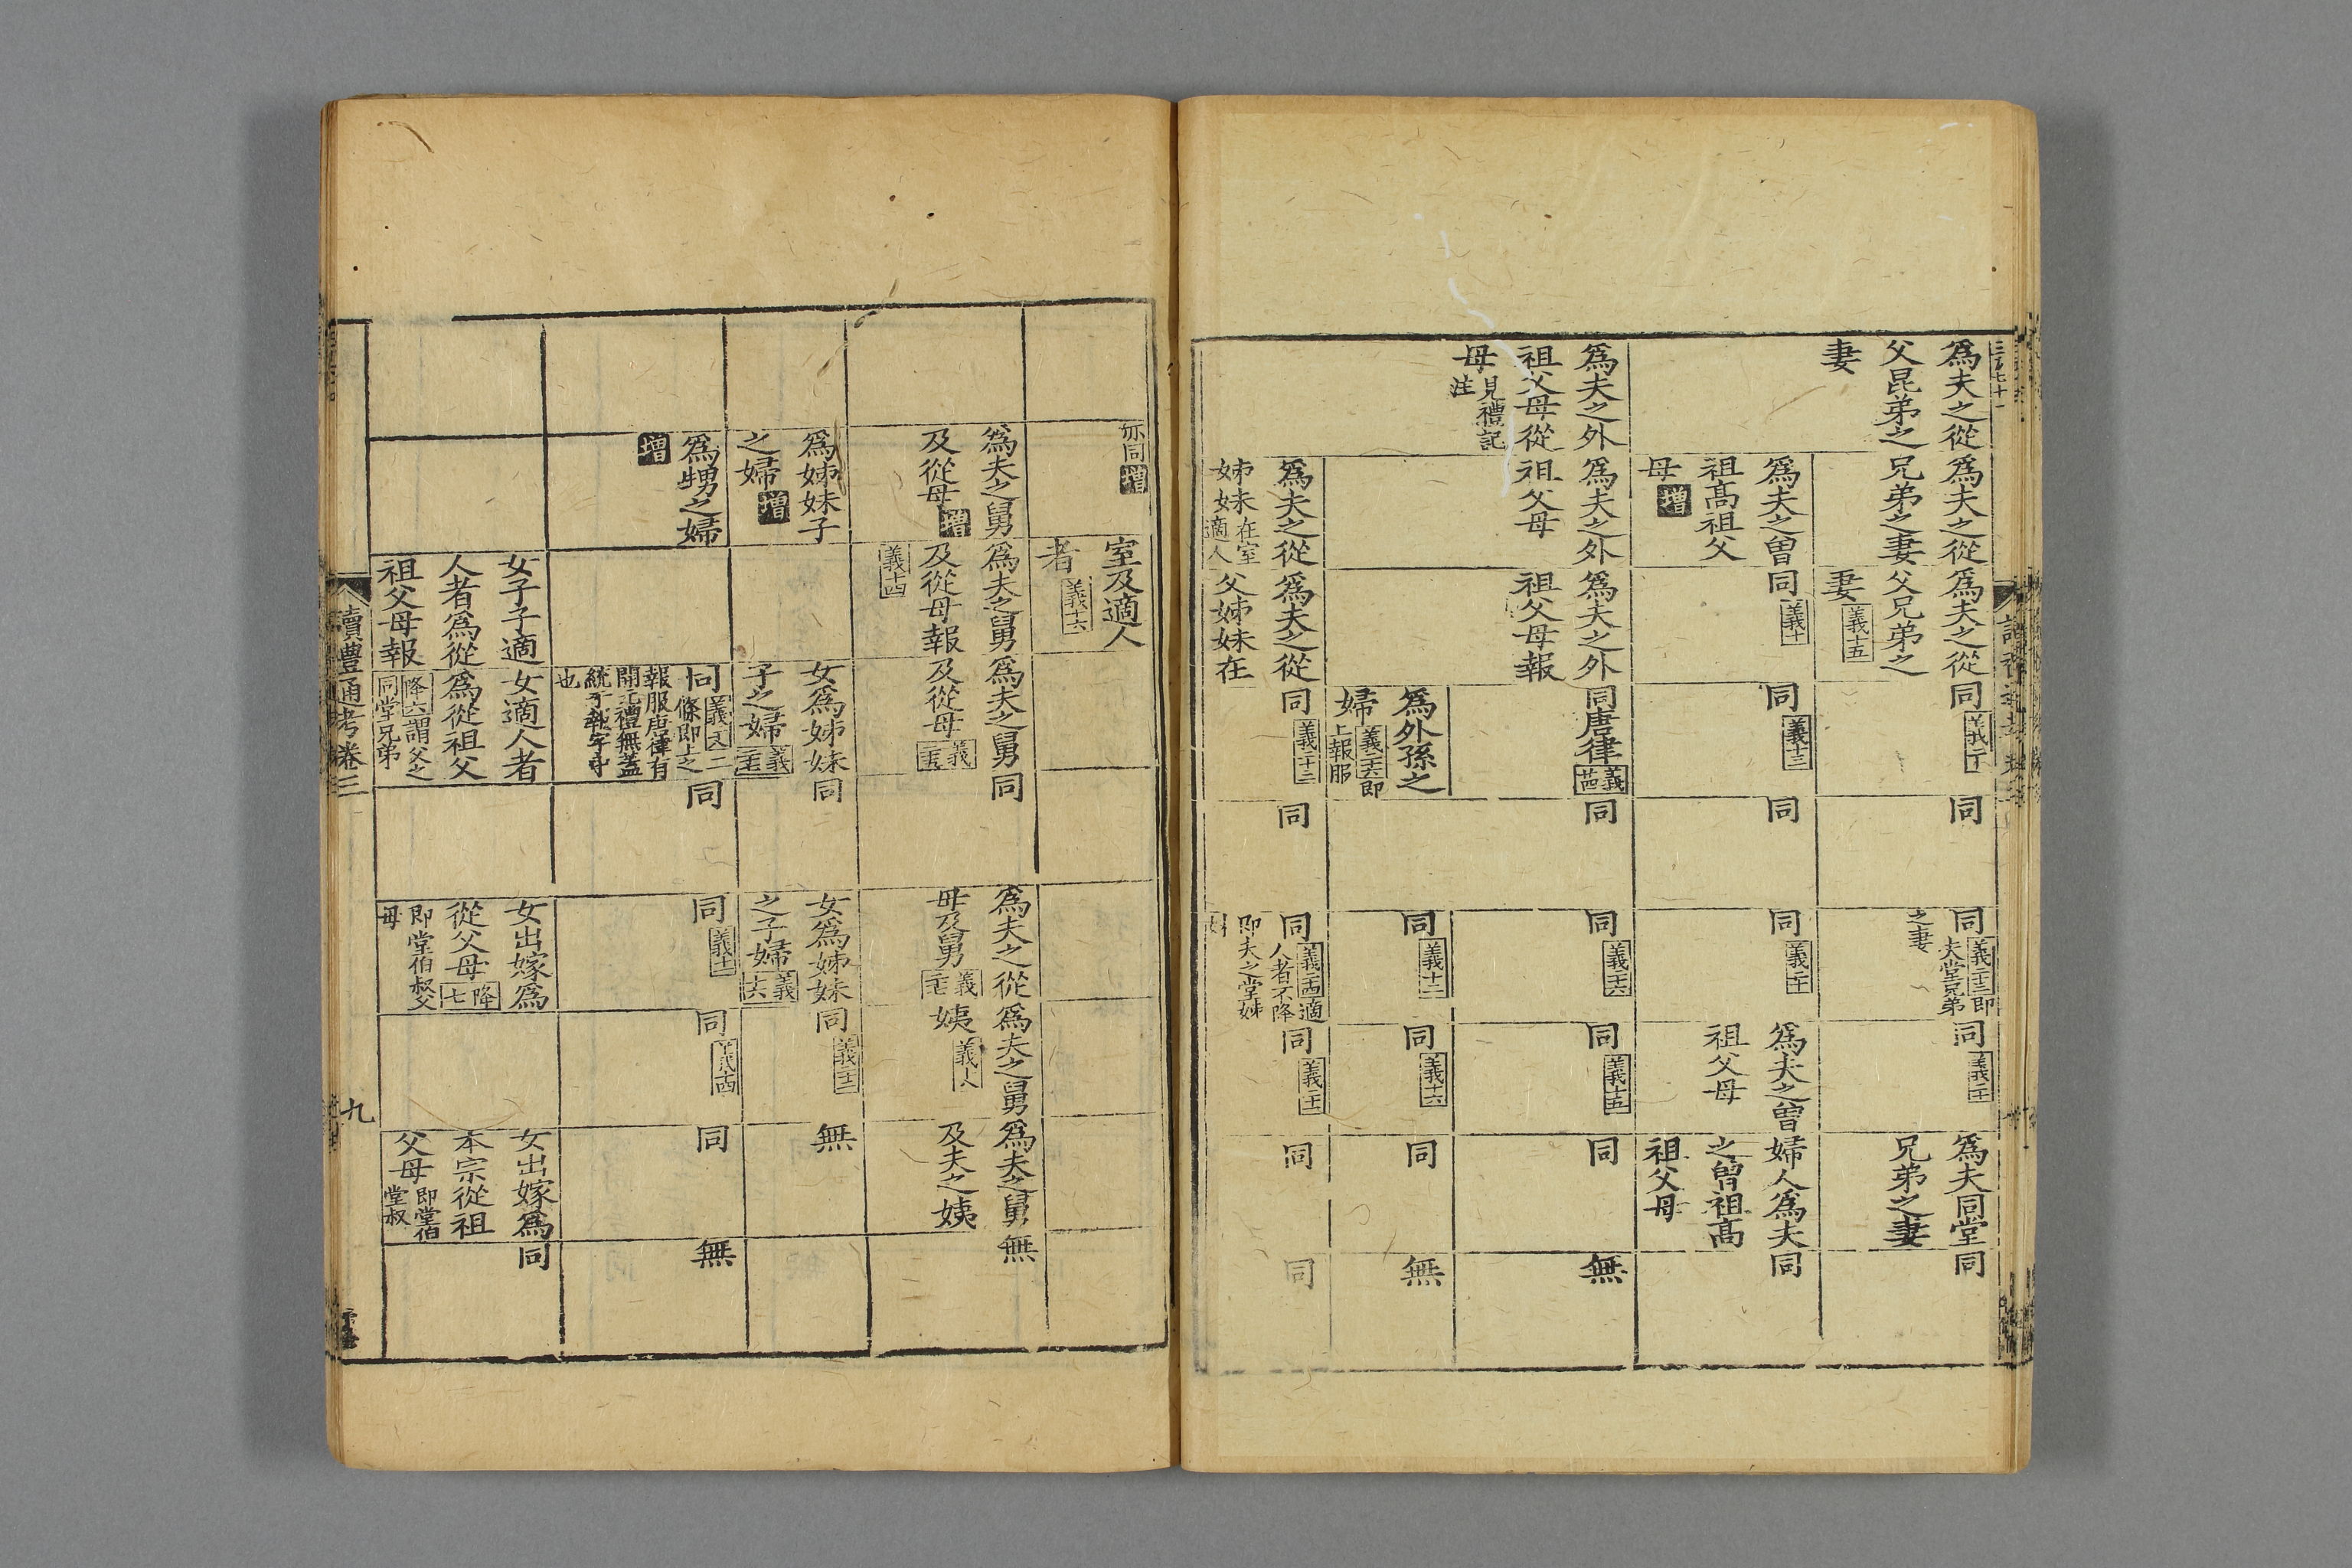 爲夫之從
父昆弟之
妻
爲夫之從
兄弟之妻
爲夫之從
父兄弟之
妻 義十五
同
同
同 義二十三即
夫堂兄弟
之妻
同
爲夫同堂
兄弟之妻
同
爲夫之曾
祖高祖父
母 增
同 義十
同 義十三
同
同 義二十
爲夫之曾
祖父母
婦人爲夫
之曾祖高
祖父母
同
爲夫之外
祖父母從
母 見禮記
注
爲夫之外
祖父母
爲夫之外
祖父母報
同唐律 義
同
同 義二十六
同 義十五
同
無
爲外孫之
婦 義二十六即
上報服
同 義十二
同 義十六
同
無
爲夫之從
姊妹 在室
適人
爲夫之從
父姊妹在
同 義二十二
同
同 義二十四適
人者不降
即夫之堂姊
妹
同
同
同
亦同 增
室及適人
者 義十六
爲夫之舅
及從母 增
爲夫之舅
及從母報
義十四
爲夫之舅
及從母 義
同
爲夫之從
母及舅 義
爲夫之舅
姨 義十八
爲夫之舅
及夫之姨
無
爲姊妹子
之婦 增
女爲姊妹
子之婦 義
同
女爲姊妹
之子婦 義
同
無
爲甥之婦
增
同 義
條即上之
報服唐律有
開元禮無蓋
統于報字中
也
同
同 義十一
同
同
無
女子子適
人者爲從
祖父母報
女適人者
爲從祖父
降六謂父之
同堂兄弟
女出嫁爲
從父母 降七
即堂伯叔父
母
女出嫁爲
本宗從祖
父母 即堂伯
堂叔
同
讀豊通考卷三
九